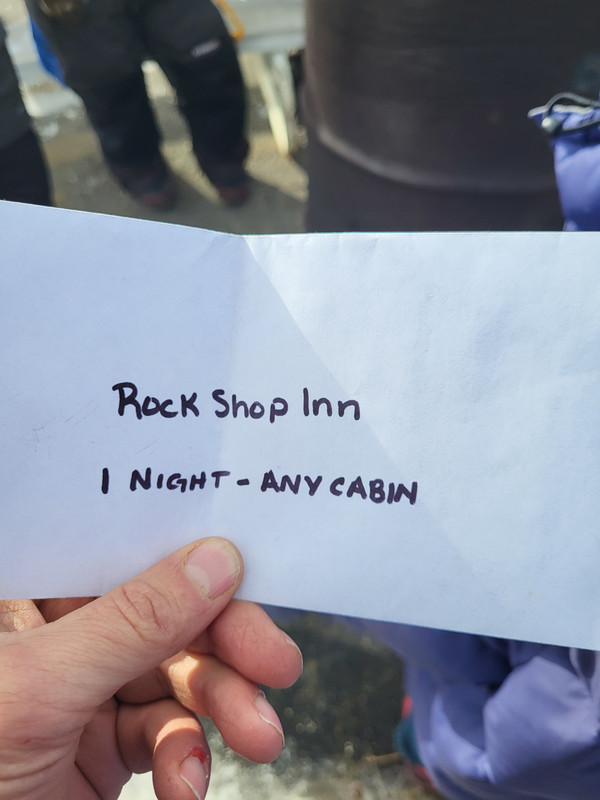 Rock Shop Inn
1 NIGHT - ANY CABIN